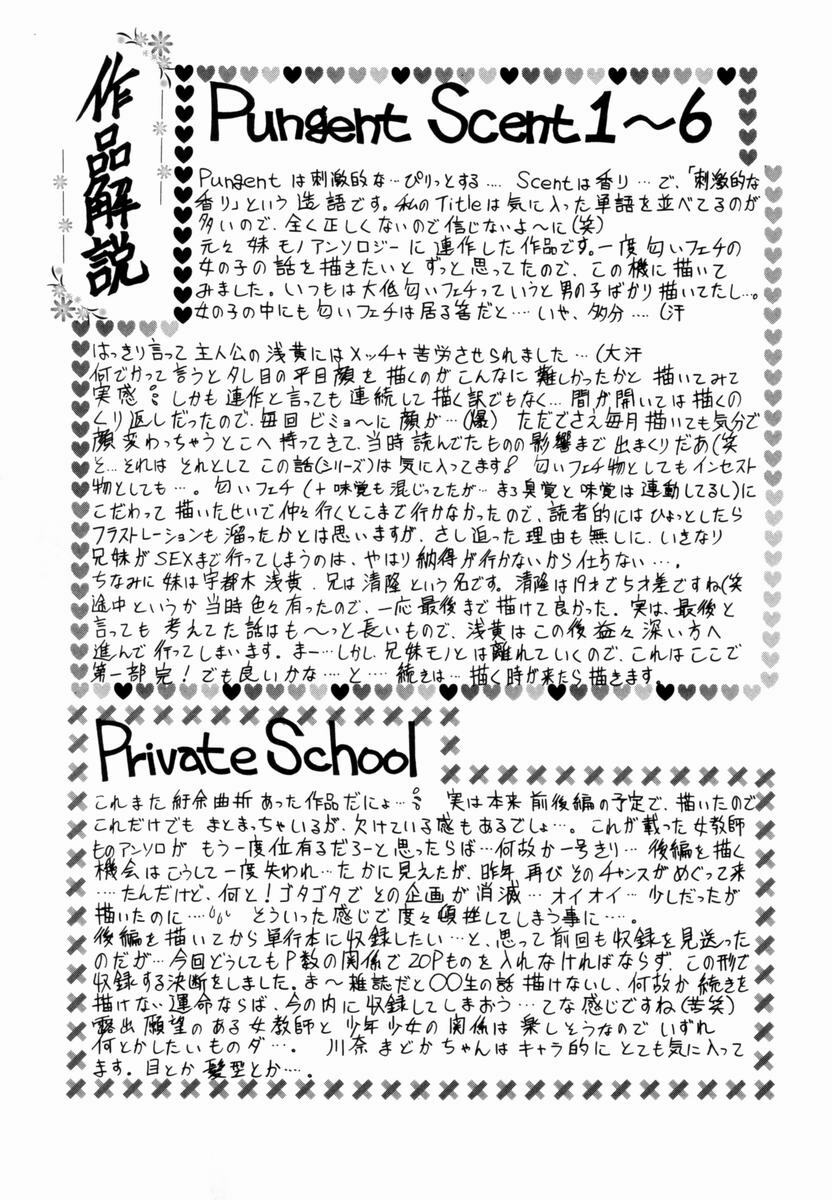 作品解説
Pungent Scent 1～6
Pungent は刺激的な…ぴりっとする…. Scentは香り…で、「刺激的な
香り」という造語です。私のTitleは気に入った単語を並べてるのが
多いので、全く正しくないので信じないよ～に(笑)
元々妹モノアンソロジーに連作した作品です。一度匂いフェチの
女の子の話を描きたいとずっと思ってたので、この機に描いて
みました。いつもは大低匂いフェチっていうと男の子ばかり描いてたし…。
女の子の中にも匂いフェチは居る筈だと…いや、多分…. (汗
はっきり言って主人公の浅黄にはメッチャ苦労させられました…(大汗
何でかって言うとタレ目の平目顔を描くのがこんなに難しかったかと描いてみて
実感。しかも連作と言っても連続して描く訳でもなく…間が開いては描くの
くり返しだったので、毎回ビミョ～に顔が…(爆) ただでさえ毎月描いても気分で
顔変わっちゃうとこへ持ってきて、当時読んでたものの影響まで出まくりだあ(笑
そ…それはそれとしてこの話(シリーズ)は気に入ってます 匂いフェチ物としてもインセスト
物としても…。匂いフェチ(+味覚も混じってたが…まぁ臭覚と味覚は連動してるし)に
こだわって描いたせいで仲々行くとこまで行かなかったので、読者的にはひょっとしたら
フラストレーションも溜ったかとは思いますが、さし迫った理由も無しに、いきなり
兄妹がSEXまで行ってしまうのは、やはり納得が行かないから仕方ない…。
ちなみに妹は宇都木浅黄、兄は清隆という名です。清隆は19才で5才差ですね(笑
途中というか当時色々有ったので、一応最後まで描けて良かった。実は、最後と
言っても考えてた話はも～っと長いもので、浅黄はこの後益々深い方へ
進んで行ってしまいます。まー…しかし、兄妹モノとは離れていくので、これはここで
第一部完！でも良いかな…と…続きは…描く時が来たら描きます。
Private School
これまた紆余曲折あった作品だにょ… 実は本来前後編の予定で、描いたので
これだけでもまとまっちゃいるが、欠けている感もあるでしょ…。これが載った女教師
ものアンソロがもう一度位有るだろーと思ったらば…何故か一号きり…後編を描く
機会はこうして一度失われ…たかに見えたが、昨年、再びそのチャンスがめぐって来
…たんだけど、何と！ゴタゴタでその企画が消滅…オイオイ…少しだったが
描いたのに… そういった感じで度々頓挫してしまう事に…。
後編を描いてから単行本に収録したい…と、思って前回も収録を見送った
のだが…今回どうしてもP数の関係で20Pものを入れなければならず、この形で
収録する決断をしました。ま～雑誌だと〇〇生の話描けないし、何故か続きを
描けない運命ならば、今の内に収録してしまおう…てな感じですね(苦笑)
露出願望のある女教師と少年少女の関係は楽しそうなのでいずれ
何とかしたいものダ…。 川奈まどかちゃんはキャラ的にとても気に入って
ます。目とか髪型とか…。